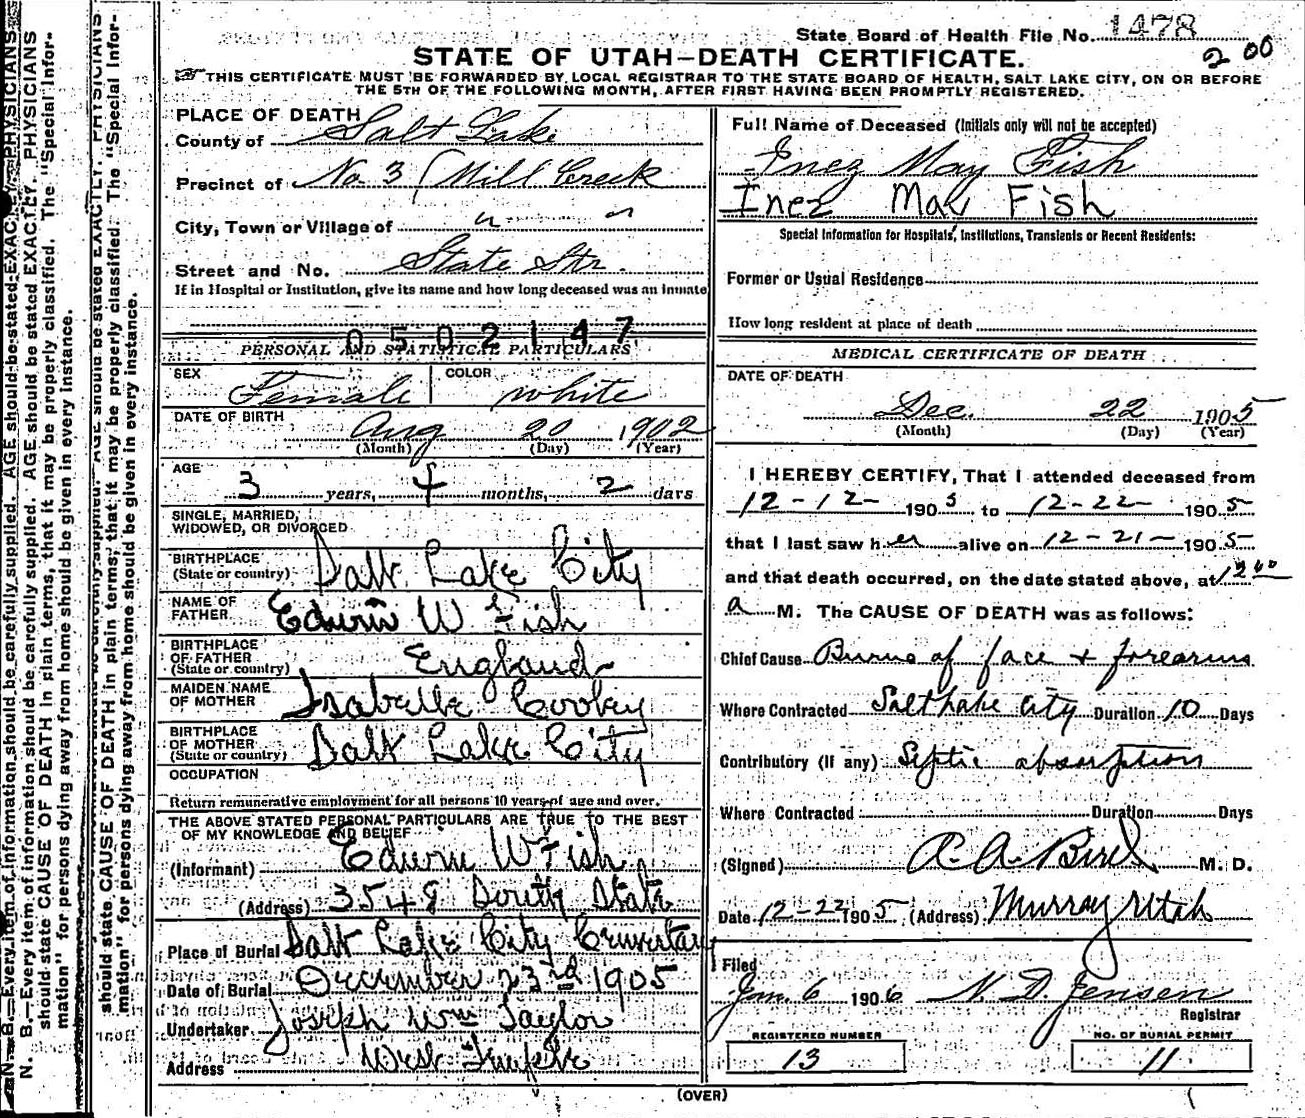 N. B.—Every item of information should be carefully supplied. AGE should be stated EXACTLY. PHYSICIANS
should state CAUSE OF DEATH in plain terms, that it may be properly classified. The "Special Infor-
mation" for persons dying away from home should be given in every instance.
State Board of Health File No. 1478
2 00
STATE OF UTAH—DEATH CERTIFICATE.
THIS CERTIFICATE MUST BE FORWARDED BY LOCAL REGISTRAR TO THE STATE BOARD OF HEALTH, SALT LAKE CITY, ON OR BEFORE
THE 5TH OF THE FOLLOWING MONTH, AFTER FIRST HAVING BEEN PROMPTLY REGISTERED.
PLACE OF DEATH
County of Salt Lake
Precinct of No. 3 (Mill Creek
City, Town or Village of " "
Street and No. State Str.
If in Hospital or Institution, give its name and how long deceased was an inmate
0502147
PERSONAL AND STATISTICAL PARTICULARS
SEX Female COLOR white
DATE OF BIRTH Aug 20 1902
(Month) (Day) (Year)
AGE 3 years, 4 months, 2 days
SINGLE, MARRIED,
WIDOWED, OR DIVORCED
BIRTHPLACE
(State or country) Salt Lake City
NAME OF
FATHER Edwin W Fish
BIRTHPLACE
OF FATHER
(State or country) England
MAIDEN NAME
OF MOTHER Isabelle
BIRTHPLACE
OF MOTHER
(State or country) Salt Lake City
OCCUPATION
Return remunerative employment for all persons 10 years of age and over.
THE ABOVE STATED PERSONAL PARTICULARS ARE TRUE TO THE BEST
OF MY KNOWLEDGE AND BELIEF
(Informant) Edwin W Fish
(Address) 3548 South State
Place of Burial Salt Lake City Cemetary
Date of Burial December 23rd 1905
Undertaker Joseph Wm Taylor
Address West Temple
Full Name of Deceased (Initials only will not be accepted)
Inez May Fish
Inez May Fish
Special Information for Hospitals, Institutions, Transients or Recent Residents:
Former or Usual Residence
How long resident at place of death
MEDICAL CERTIFICATE OF DEATH
DATE OF DEATH
Dec. 22 1905
(Month) (Day) (Year)
I HEREBY CERTIFY, That I attended deceased from
12-12- 1905 to 12-22- 1905
that I last saw her alive on 12-21- 1905
and that death occurred, on the date stated above, at 12 00
a M. The CAUSE OF DEATH was as follows:
Chief Cause Burns of face + forearms
Where Contracted Salt Lake City Duration 10 Days
Contributory (If any) Septic absorption
Where Contracted Duration Days
(Signed) M. D.
Date 12-22 1905 (Address) Murray Utah
Filed
Jan. 6 1906 N. D. Jensen
Registrar
REGISTERED NUMBER
13
NO. OF BURIAL PERMIT
11
(OVER)